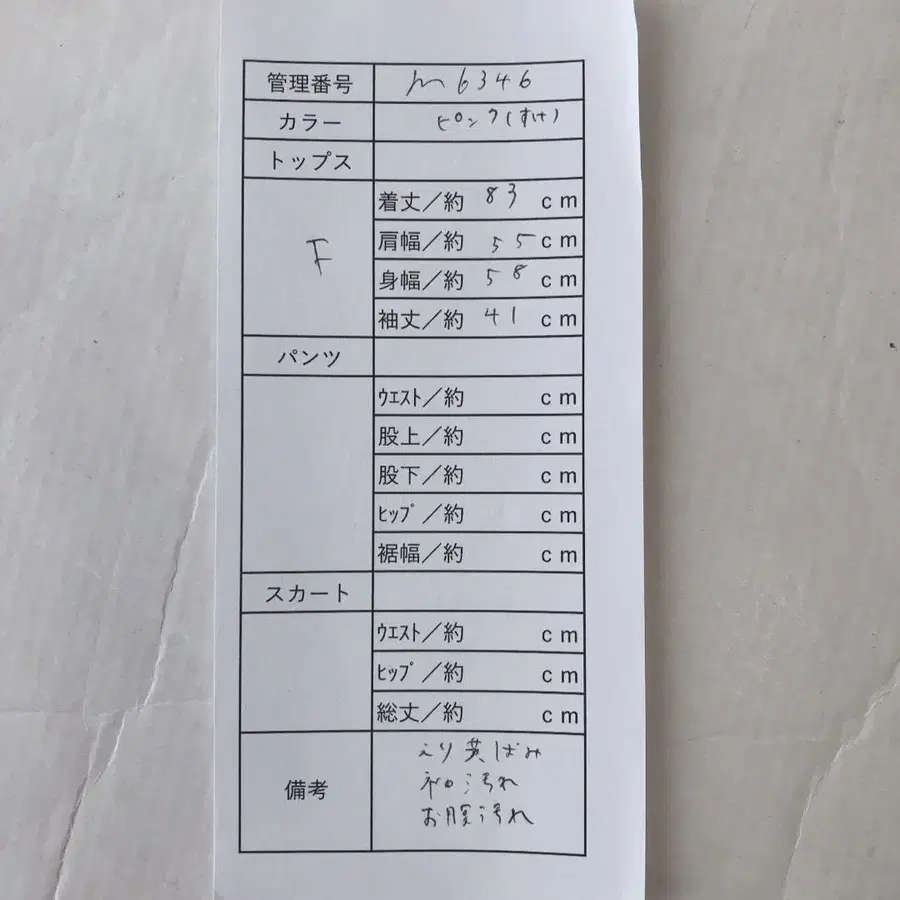 管理番号 m6346
カラー ピンク(すけ)
トップス
F
着丈/約 83 cm
肩幅/約 55 cm
身幅/約 58 cm
袖丈/約 41 cm
パンツ
ウエスト/約 cm
股上/約 cm
股下/約 cm
ヒップ/約 cm
裾幅/約 cm
スカート
ウエスト/約 cm
ヒップ/約 cm
総丈/約 cm
備考
えり黄ばみ
袖口汚れ
お腹汚れ